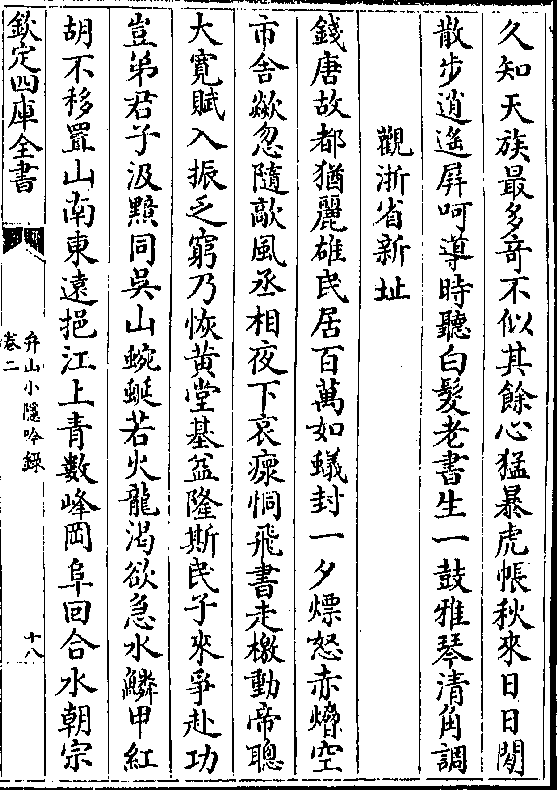 久知天族最多竒不似其餘心猛暴虎帳秋來日日閒
散步逍遥屏呵導時聽白髮老書生一鼓雅琴清角調
觀浙省新址
錢唐故都猶麗雄民居百萬如蟻封一夕熛怒赤熷空
市舍歘忽隨敵風丞相夜下哀瘝恫飛書走檄動帝聰
大寛賦入振乏窮乃恢黄堂基益隆斯民子來爭赴功
豈弟君子汲黯同吳山蜿蜒若火龍渇欲急水鱗甲紅
胡不移置山南東遠挹江上青數峰岡阜回合水朝宗
欽定四庫全書
弁山小隱吟録
卷二
十八